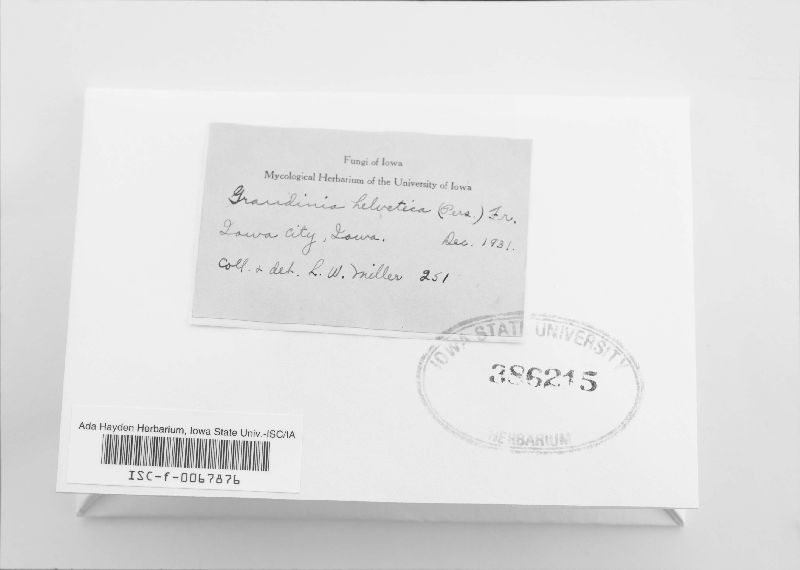 Fungi of Iowa
Mycological Herbarium of the University of Iowa
Grandinia helvetica (Pers.) Fr.
Iowa City, Iowa. Dec. 1931.
Coll. & det. L. W. Miller 251
IOWA STATE UNIVERSITY
386215
HERBARIUM
Ada Hayden Herbarium, Iowa State Univ.-ISC/IA
ISC-f-0067876